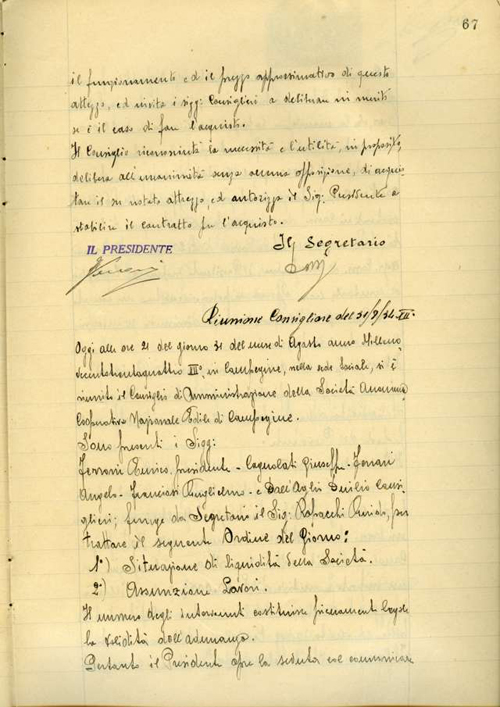 67
il funzionamento ed il prezzo approssimativo di questo
attrezzo, ed invita i sigg: Consiglieri a deliberare in merito
se è il caso di fare l'acquisto.
Il Consiglio riconosciuta la necessità e l'utilità, in proposito
delibera all'unanimità senza alcuna opposizione, di acquis-
tare il su notato attrezzo, ed autorizza il Sig: Presidente a
stabilire il contratto per l'acquisto.
IL PRESIDENTE
Il Segretario
Riunione Consigliare del 31/8/34-XII°.
Oggi alle ore 21 del giorno 31 del mese di Agosto anno Milleno-
vecentotrentaquattro XII°, in Campegine, nella sede Sociale, si è
riunito il Consiglio di Amministrazione della Società Anonima
Cooperativa Nazionale Edile di Campegine.
Sono presenti i Sigg:
Ferrari Enrico, presidente - Cagnolati Giuseppe - Ferrari
Angelo - Franciosi Guglielmo - e Dall'Aglio Duilio Consi-
glieri; funge da Segretario il Sig: , per
trattare il seguente Ordine del Giorno:
1°) Situazione di liquidità della Società.
2°) Assunzione Lavori.
Il numero degli intervenuti costituisce pienamente legale
la validità dell'adunanza.
Pertanto il Presidente apre la seduta col comunicare